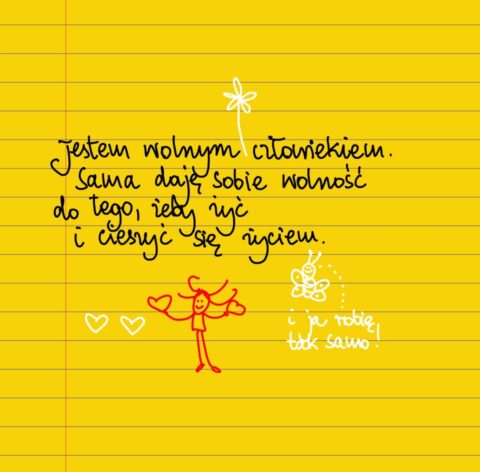 Jestem wolnym człowiekiem.
Sama daję sobie wolność
do tego, żeby żyć
i cieszyć się życiem.
i ja robię
tak samo!